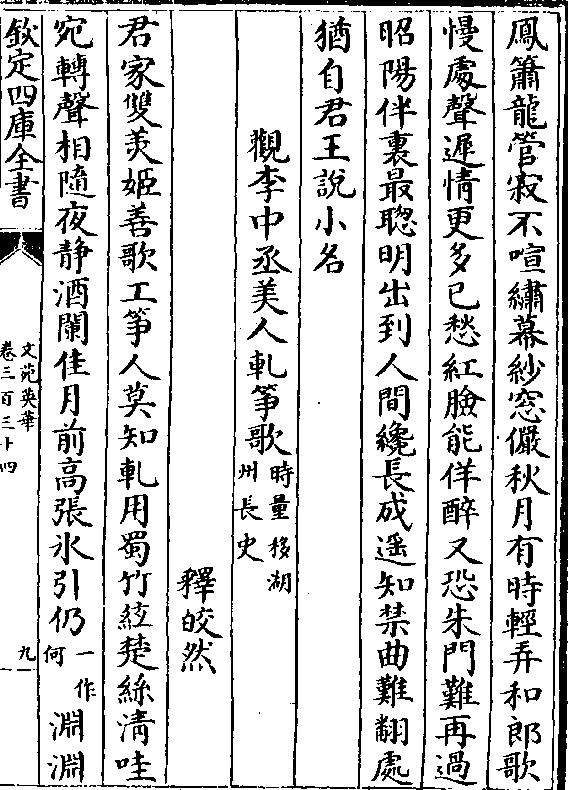 鳳簫龍管寂不喧繡幕紗窓儼秋月有時輕弄和郎歌
慢處聲遲情更多已愁紅臉能佯醉又恐朱門難再過
昭陽伴裏最聰明出到人間纔長成遥知禁曲難翻處
猶自君王說小名
觀李中丞美人軋筝歌時量移湖州長史
釋皎然
君家雙美姬善歌工筝人莫知軋用蜀竹絃楚絲清哇
宛轉聲相隨夜静酒闌佳月前高張氷引仍一作何淵淵
欽定四庫全書
文苑英華
卷三百三十四
九